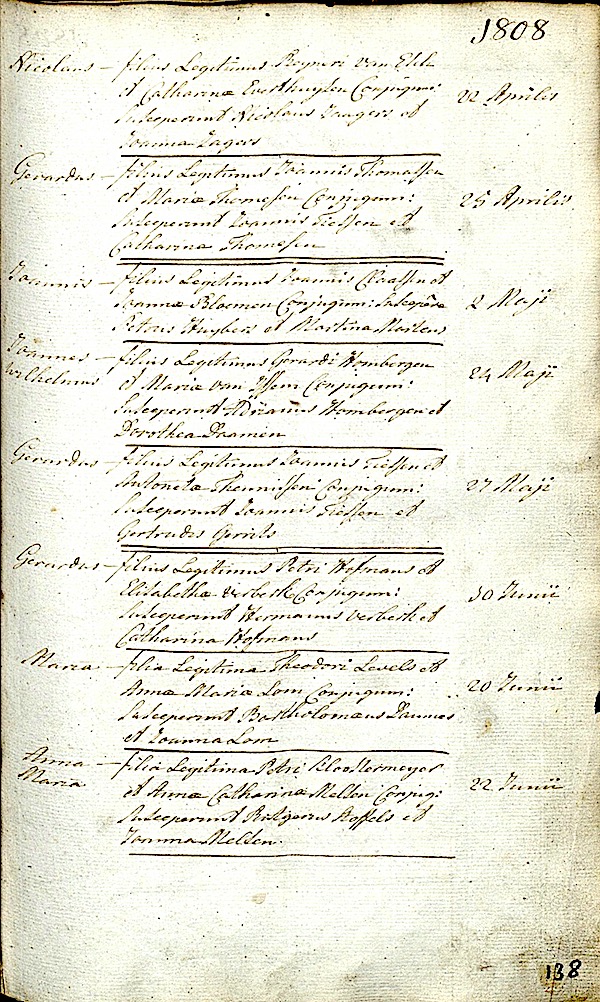 1808
Nicolaus - filius Legitimus Reyneri van Elst
et Catharinæ Everthuysen Conjugum: 22 Aprilis
Susceperunt Nicolaus Jaegers et
Joanna Jagers
Gerardus - filius Legitimus Joannis Thomassen
et Mariæ Thomesen Conjugum: 25 Aprilis
Susceperunt Joannis Tiessen et
Catharina Thomesen
Joannis - filius Legitimus Joannis Claassen et
Joannæ Bloemen Conjugum: Suscepêre 2 Maji
Petrus Huybers et Martina Martens
Joannes Wilhelmus - filius Legitimus Gerardi Hombergen
et Mariæ van Essem Conjugum: 24 Maji
Susceperunt Adrianus Hombergen et
Dorothea Daamen
Gerardus - filius Legitimus Joannis Tiessen et
Antonetæ Theunissen Conjugum: 27 Maji
Susceperunt Joannis Tiessen et
Gertrudis Gerits
Gerardus - filius Legitimus Petri Hofmans et
Elisabethæ Verbeek Conjugum: 10 Junii
Susceperunt Hermanus Verbeek et
Catharina Hofmans
Maria - filia Legitima Theodori Levels et
Annæ Mariæ Lom Conjugum: 20 Junii
Susceperunt Bartholomæus Daumes
et Joanna Lom
Anna Maria - filia Legitima Petri Kloostermeyer
et Annæ Catharinæ Melsen Conjug: 22 Junii
Susceperunt Rutgerus Stoffels et
Joanna Melsen.
138